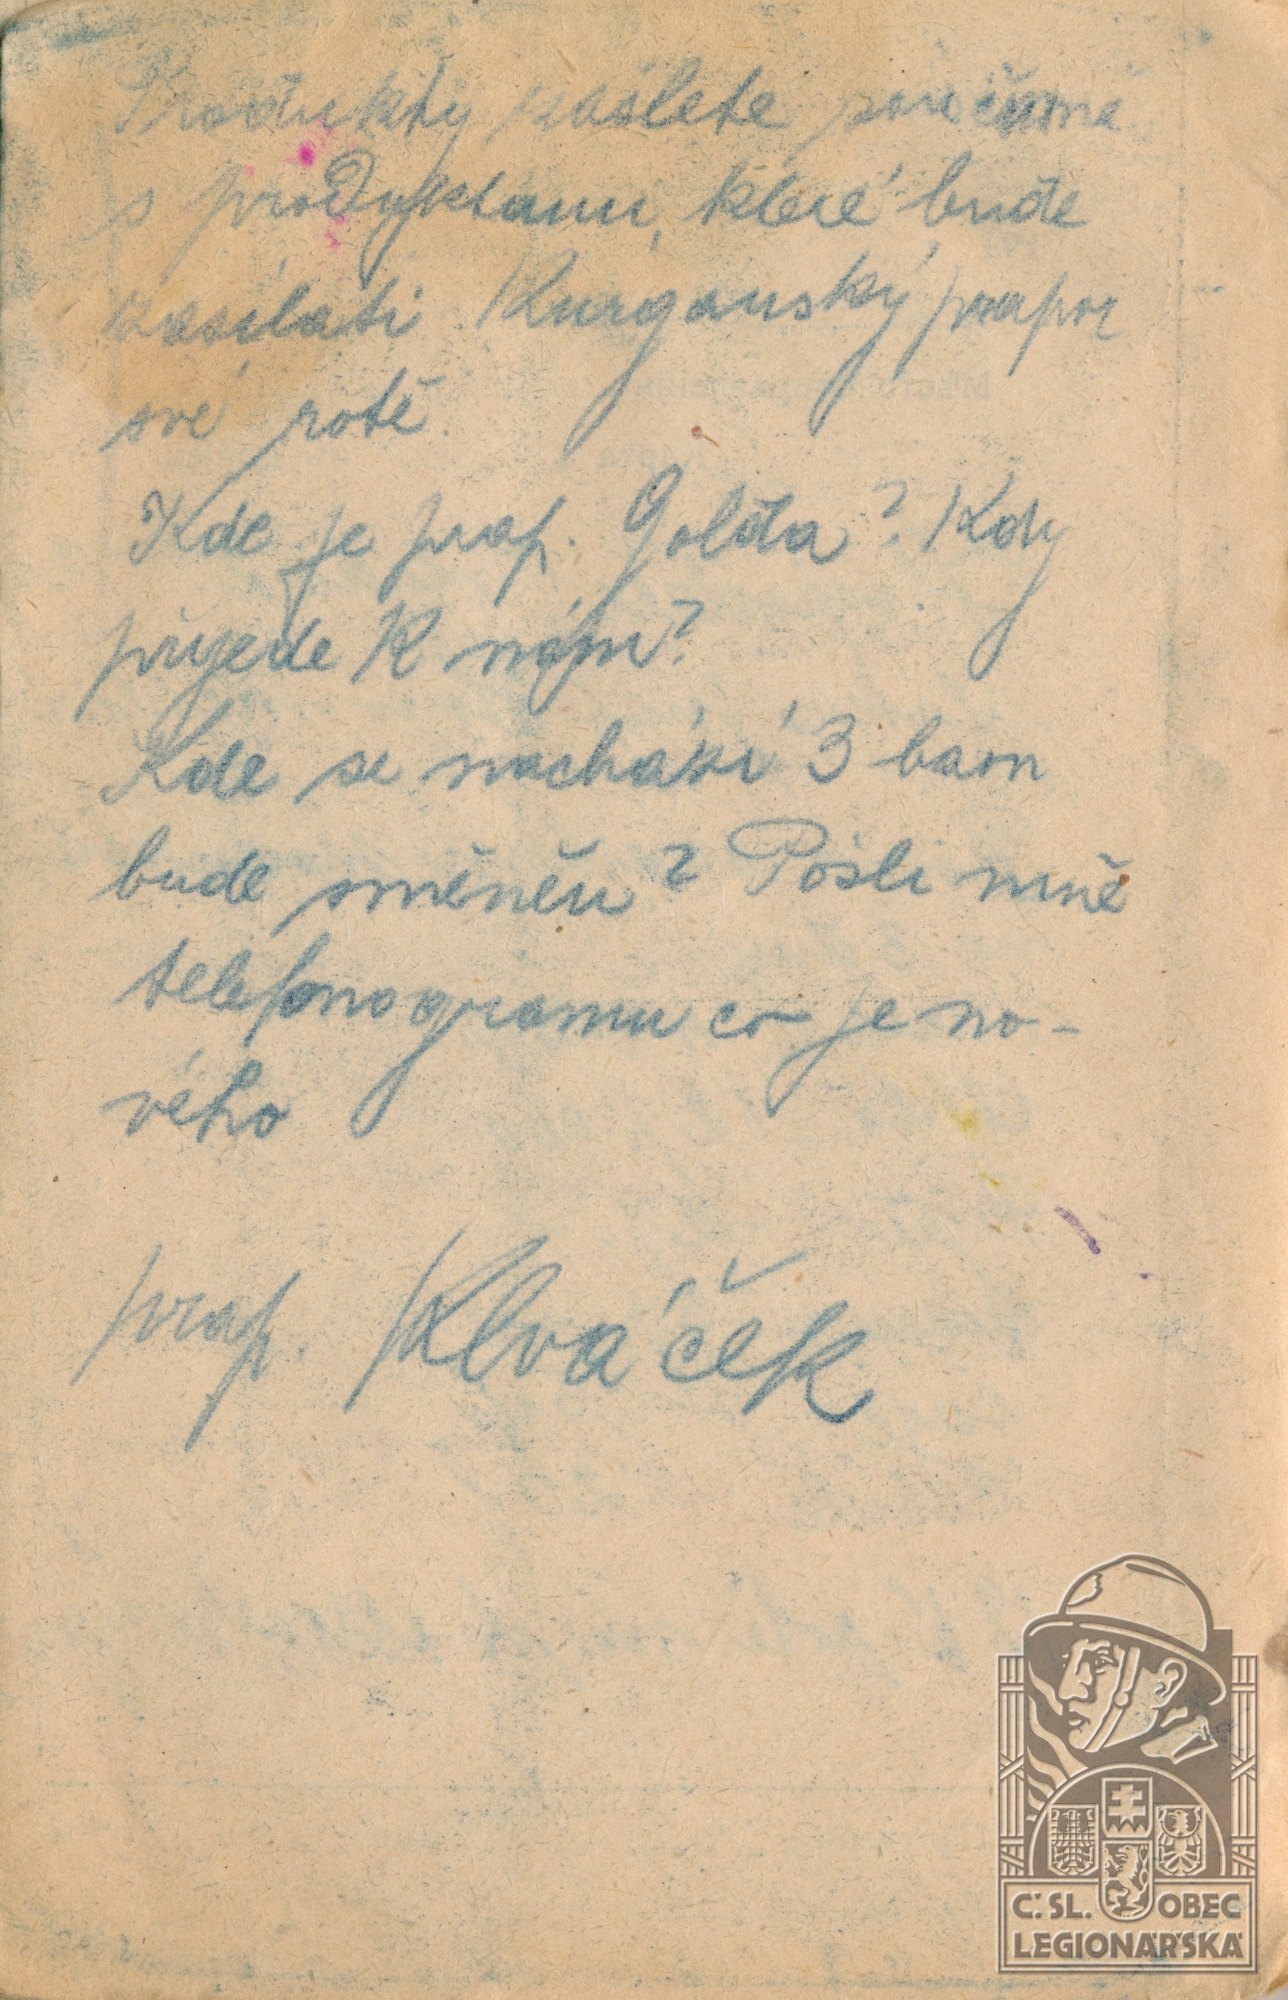 Produkty zašlete současně
s produktami, které bude
zasílati Kurganský prapor
své rotě.
Kde je prap. Golda? Kdy
přijede k nám?
Kde se nachází 3 baon
bude směněn? Pošli mně
telefonogramu co je no-
vého
prap. Klváček
Č.SL. OBEC
LEGIONÁŘSKÁ